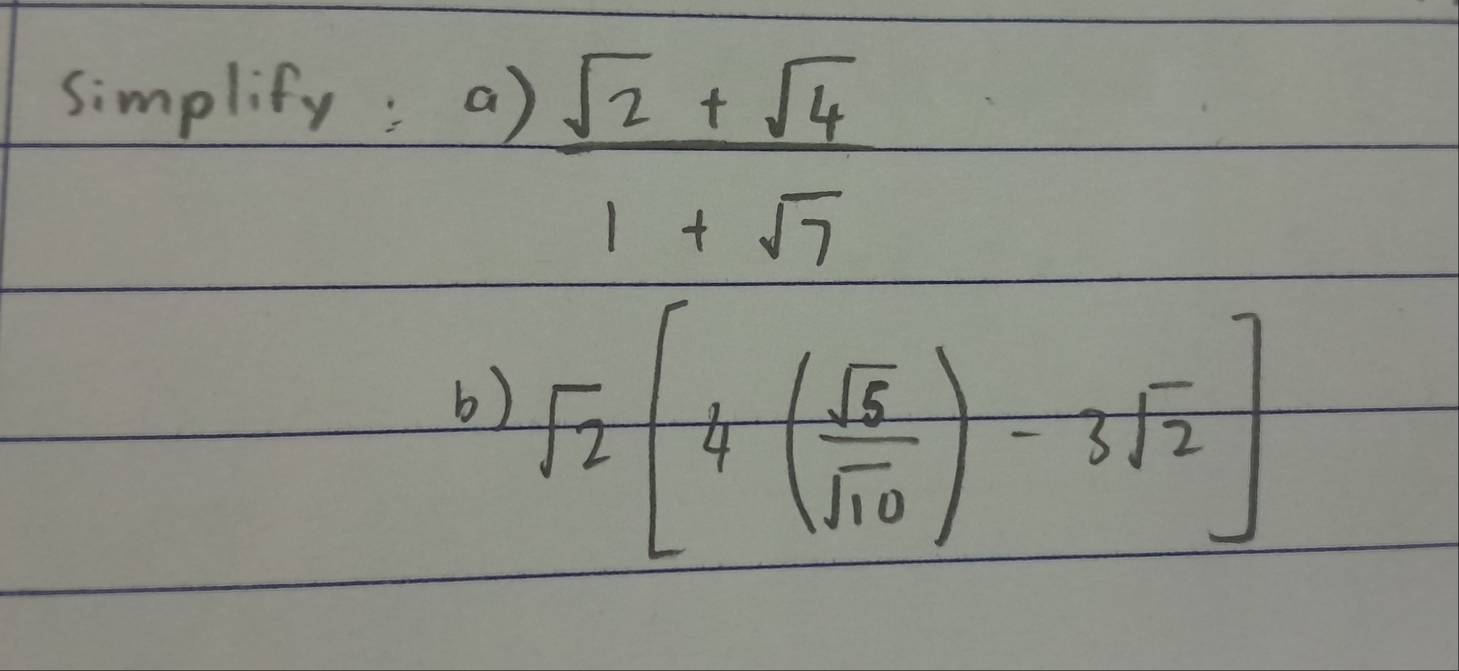 Simplify : a) √2 + √4
1 + √7
b) √2 [ 4 ( √5 / √10 ) - 3√2 ]